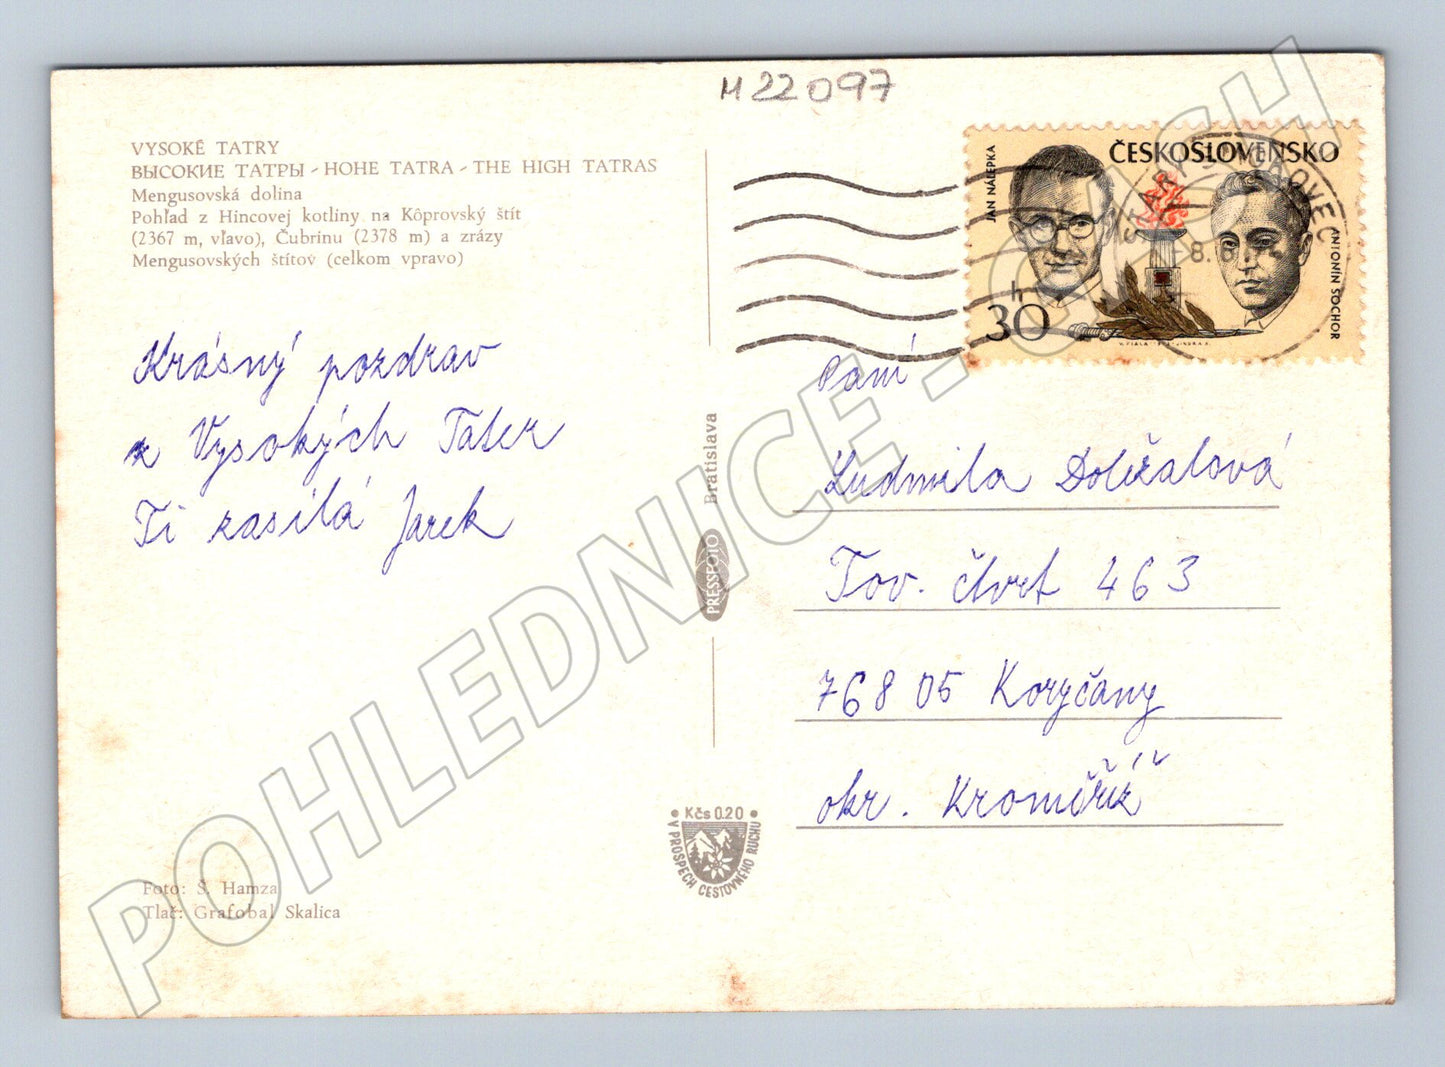 M 22 097
VYSOKÉ TATRY
ВЫСОКИЕ ТАТРЫ - HOHE TATRA - THE HIGH TATRAS
Mengusovská dolina
Pohľad z Hincovej kotliny na Kôprovský štít
(2367 m, vľavo), Čubrinu (2378 m) a zrázy
Mengusovských štítov (celkom vpravo)
Krásný pozdrav
z Vysokých Tater
Ti zasílá Jarek
Foto: Š. Hamza
Tlač: Grafobal Skalica
Bratislava
PRESSFOTO
Kčs 0.20
V PROSPECH CESTOVNÉHO RUCHU
ČESKOSLOVENSKO
JAN NÁLEPKA
ANTONÍN SOCHOR
h
30
Paní
Ludmila Doležalová
Tov. čtvrt 463
768 05 Koryčany
okr. Kroměříž
POHLEDNICE - CASH